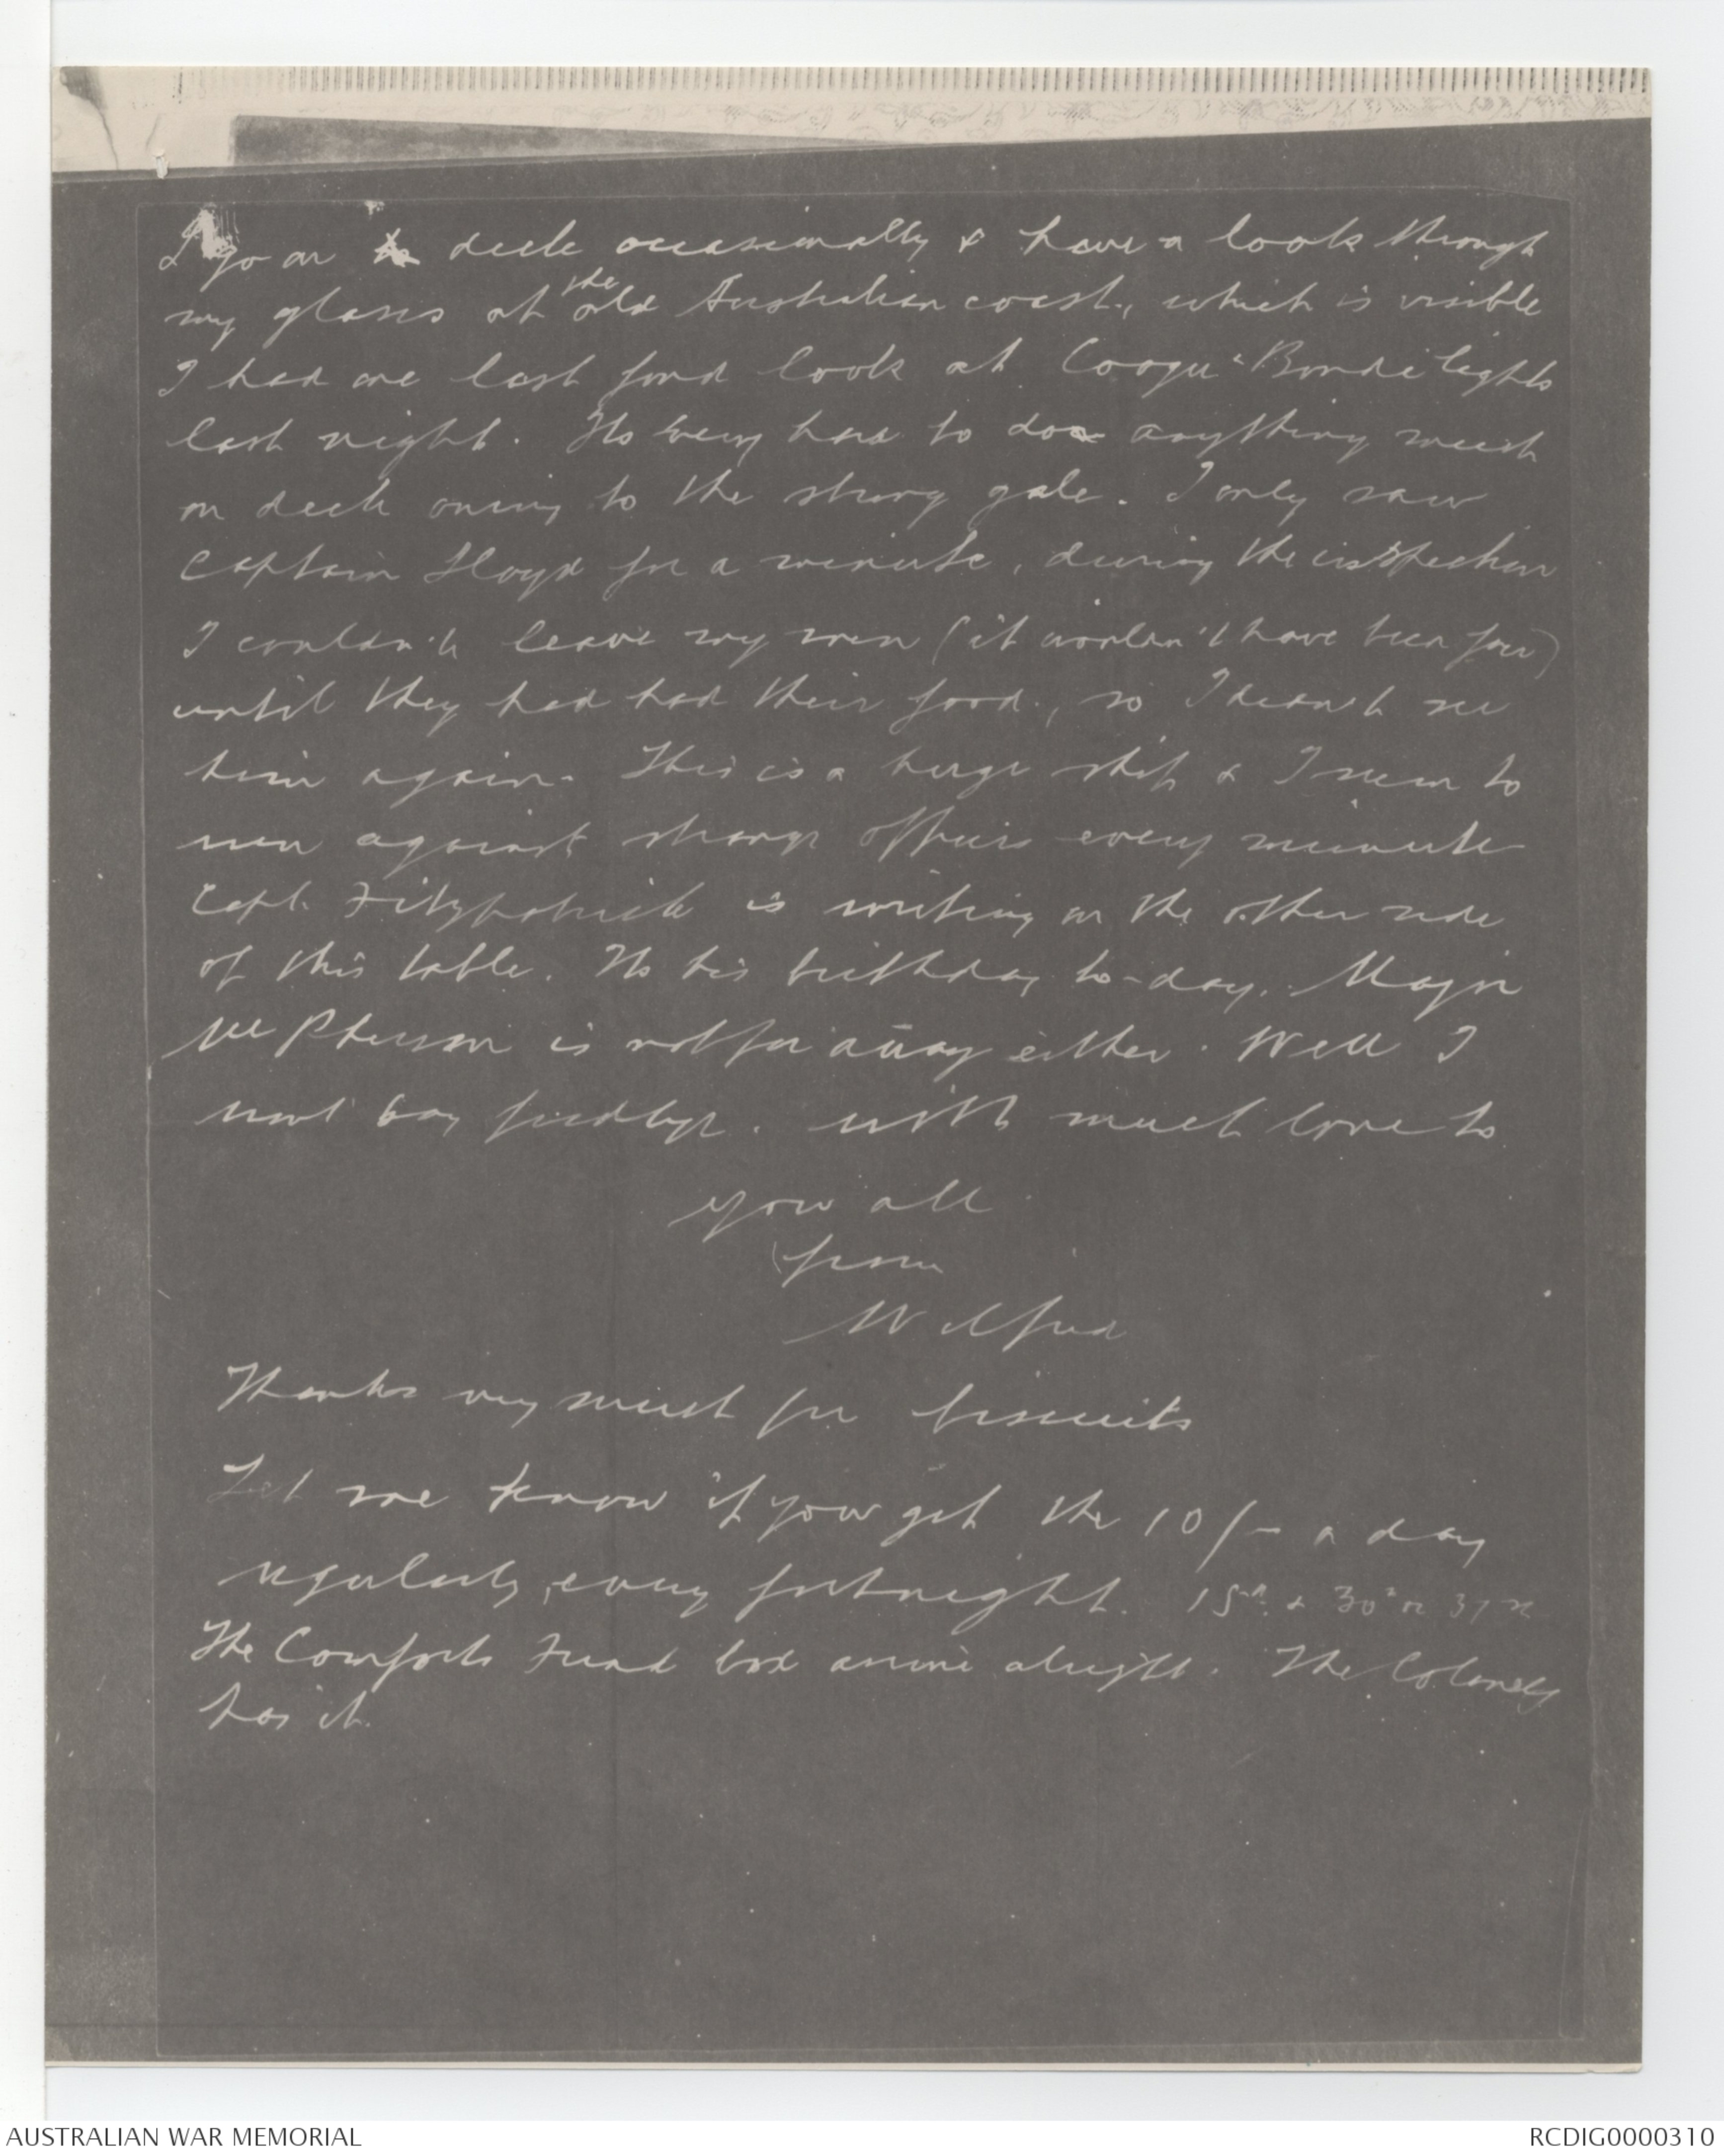 I go on deck occasionally & have a look through
my glasses at the old Australian coast, which is visible
I had one last fond look at Coogee & Bondi lights
last night. Its very hard to do anything much
on deck owing to the strong gale. I only saw
Captain Lloyd for a minute, during the inspection
I couldn't leave my men (it wouldn't have been fair)
until they had had their food, so I didn't see
him again. This is a huge ship & I seem to
run against strange officers every minute
Capt. Fitzpatrick is writing on the other side
of this table. Its his birthday to-day. Major
McPherson is not far away either. Well I
must say goodbye. with much love to
you all
from
Wilfred
Thanks very much for biscuits
Let me know if you get the 10/- a day
regularly, every fortnight. 15th & 30th or 31st
The Comforts Fund box arrive alright. The Colonel
has it.
AUSTRALIAN WAR MEMORIAL
RCDIG0000310